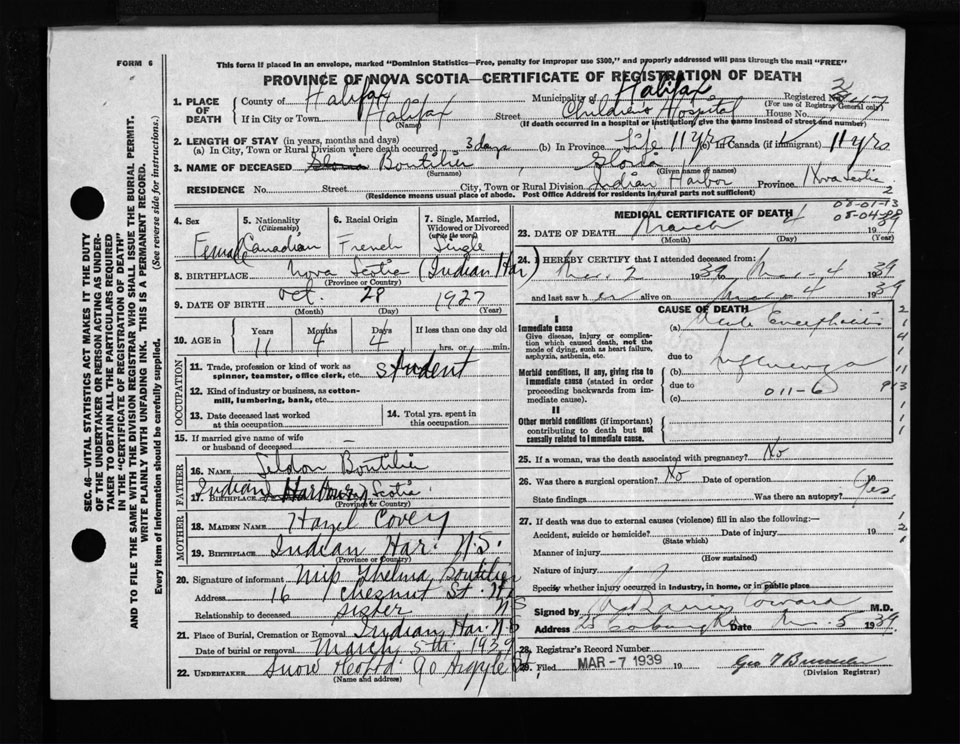 FORM 6
This form if placed in an envelope, marked "Dominion Statistics—Free, penalty for improper use $300," and properly addressed will pass through the mail "FREE"
PROVINCE OF NOVA SCOTIA—CERTIFICATE OF REGISTRATION OF DEATH
SEC. 46—VITAL STATISTICS ACT MAKES IT THE DUTY
OF THE UNDERTAKER OR PERSON ACTING AS UNDER-
TAKER TO OBTAIN ALL THE PARTICULARS REQUIRED
IN THE "CERTIFICATE OF REGISTRATION OF DEATH"
AND TO FILE THE SAME WITH THE DIVISION REGISTRAR WHO SHALL ISSUE THE BURIAL PERMIT.
WRITE PLAINLY WITH UNFADING INK. THIS IS A PERMANENT RECORD.
Every item of Information should be carefully supplied. (See reverse side for instructions.)
1. PLACE OF DEATH County of Halifax Municipality of Halifax Registered No.
(For use of Registrar General only)
If in City or Town Halifax Street Children's Hospital House No.
(Name) (If death occurred in a hospital or institution, give the name instead of street and number)
2. LENGTH OF STAY (in years, months and days)
(a) In City, Town or Rural Division where death occurred 3 days (b) In Province Life 11 yrs (c) In Canada (if immigrant) 11 yrs
3. NAME OF DECEASED Gloria Boutilier, Gloria
(Surname) (Given name or names)
RESIDENCE No. Street City, Town or Rural Division Indian Harbor Province Nova Scotia
(Residence means usual place of abode. Post Office Address for rural parts not sufficient)
4. Sex 5. Nationality (Citizenship) 6. Racial Origin 7. Single, Married, Widowed or Divorced (write the word)
Female Canadian French Single
8. BIRTHPLACE Nova Scotia (Indian Har)
(Province or Country)
9. DATE OF BIRTH Oct. 28 1927
(Month) (Day) (Year)
10. AGE in Years Months Days If less than one day old
11 4 4 hrs. or min.
OCCUPATION
11. Trade, profession or kind of work as spinner, teamster, office clerk, etc. student
12. Kind of industry or business, as cotton-mill, lumbering, bank, etc.
13. Date deceased last worked at this occupation 14. Total yrs. spent in this occupation
15. If married give name of wife or husband of deceased –
FATHER
16. NAME Seldon Boutilier
17. BIRTHPLACE Indian Harbour Scotia
(Province or Country)
MOTHER
18. MAIDEN NAME Hazel Covey
19. BIRTHPLACE Indian Har. N.S.
(Province or Country)
20. Signature of informant Miss Thelma Boutilier
Address 16 Chesnut St. Hfx N S
Relationship to deceased Sister
21. Place of Burial, Cremation or Removal Indian Har. N.S
Date of burial or removal March 5th, 1939
22. UNDERTAKER Snow 90 Argyle St.
(Name and address)
MEDICAL CERTIFICATE OF DEATH
23. DATE OF DEATH March 4 1939
(Month) (Day) (Year)
24. I HEREBY CERTIFY that I attended deceased from:
Mar. 2 1939 to Mar. 4 1939
and last saw her alive on Mar. 4 1939
CAUSE OF DEATH
I
Immediate cause
Give disease, injury or complication which caused death, not the mode of dying, such as heart failure, asphyxia, asthenia, etc.
(a) Acute Encephalitis
due to
Morbid conditions, if any, giving rise to immediate cause (stated in order proceeding backwards from immediate cause).
(b) Influenza
due to 011-6
(c)
II
Other morbid conditions (if important) contributing to death but not causally related to immediate cause.
25. If a woman, was the death associated with pregnancy? No
26. Was there a surgical operation? No Date of operation
State findings Was there an autopsy? Yes
27. If death was due to external causes (violence) fill in also the following:—
Accident, suicide or homicide? Date of injury 19
(State which)
Manner of injury
(How sustained)
Nature of injury
Specify whether injury occurred in industry, in home, or in public place
Signed by M.D.
Address Coburg Rd Date Mar. 5 1939
28. Registrar's Record Number
29. Filed MAR - 7 1939 19 Geo
(Division Registrar)